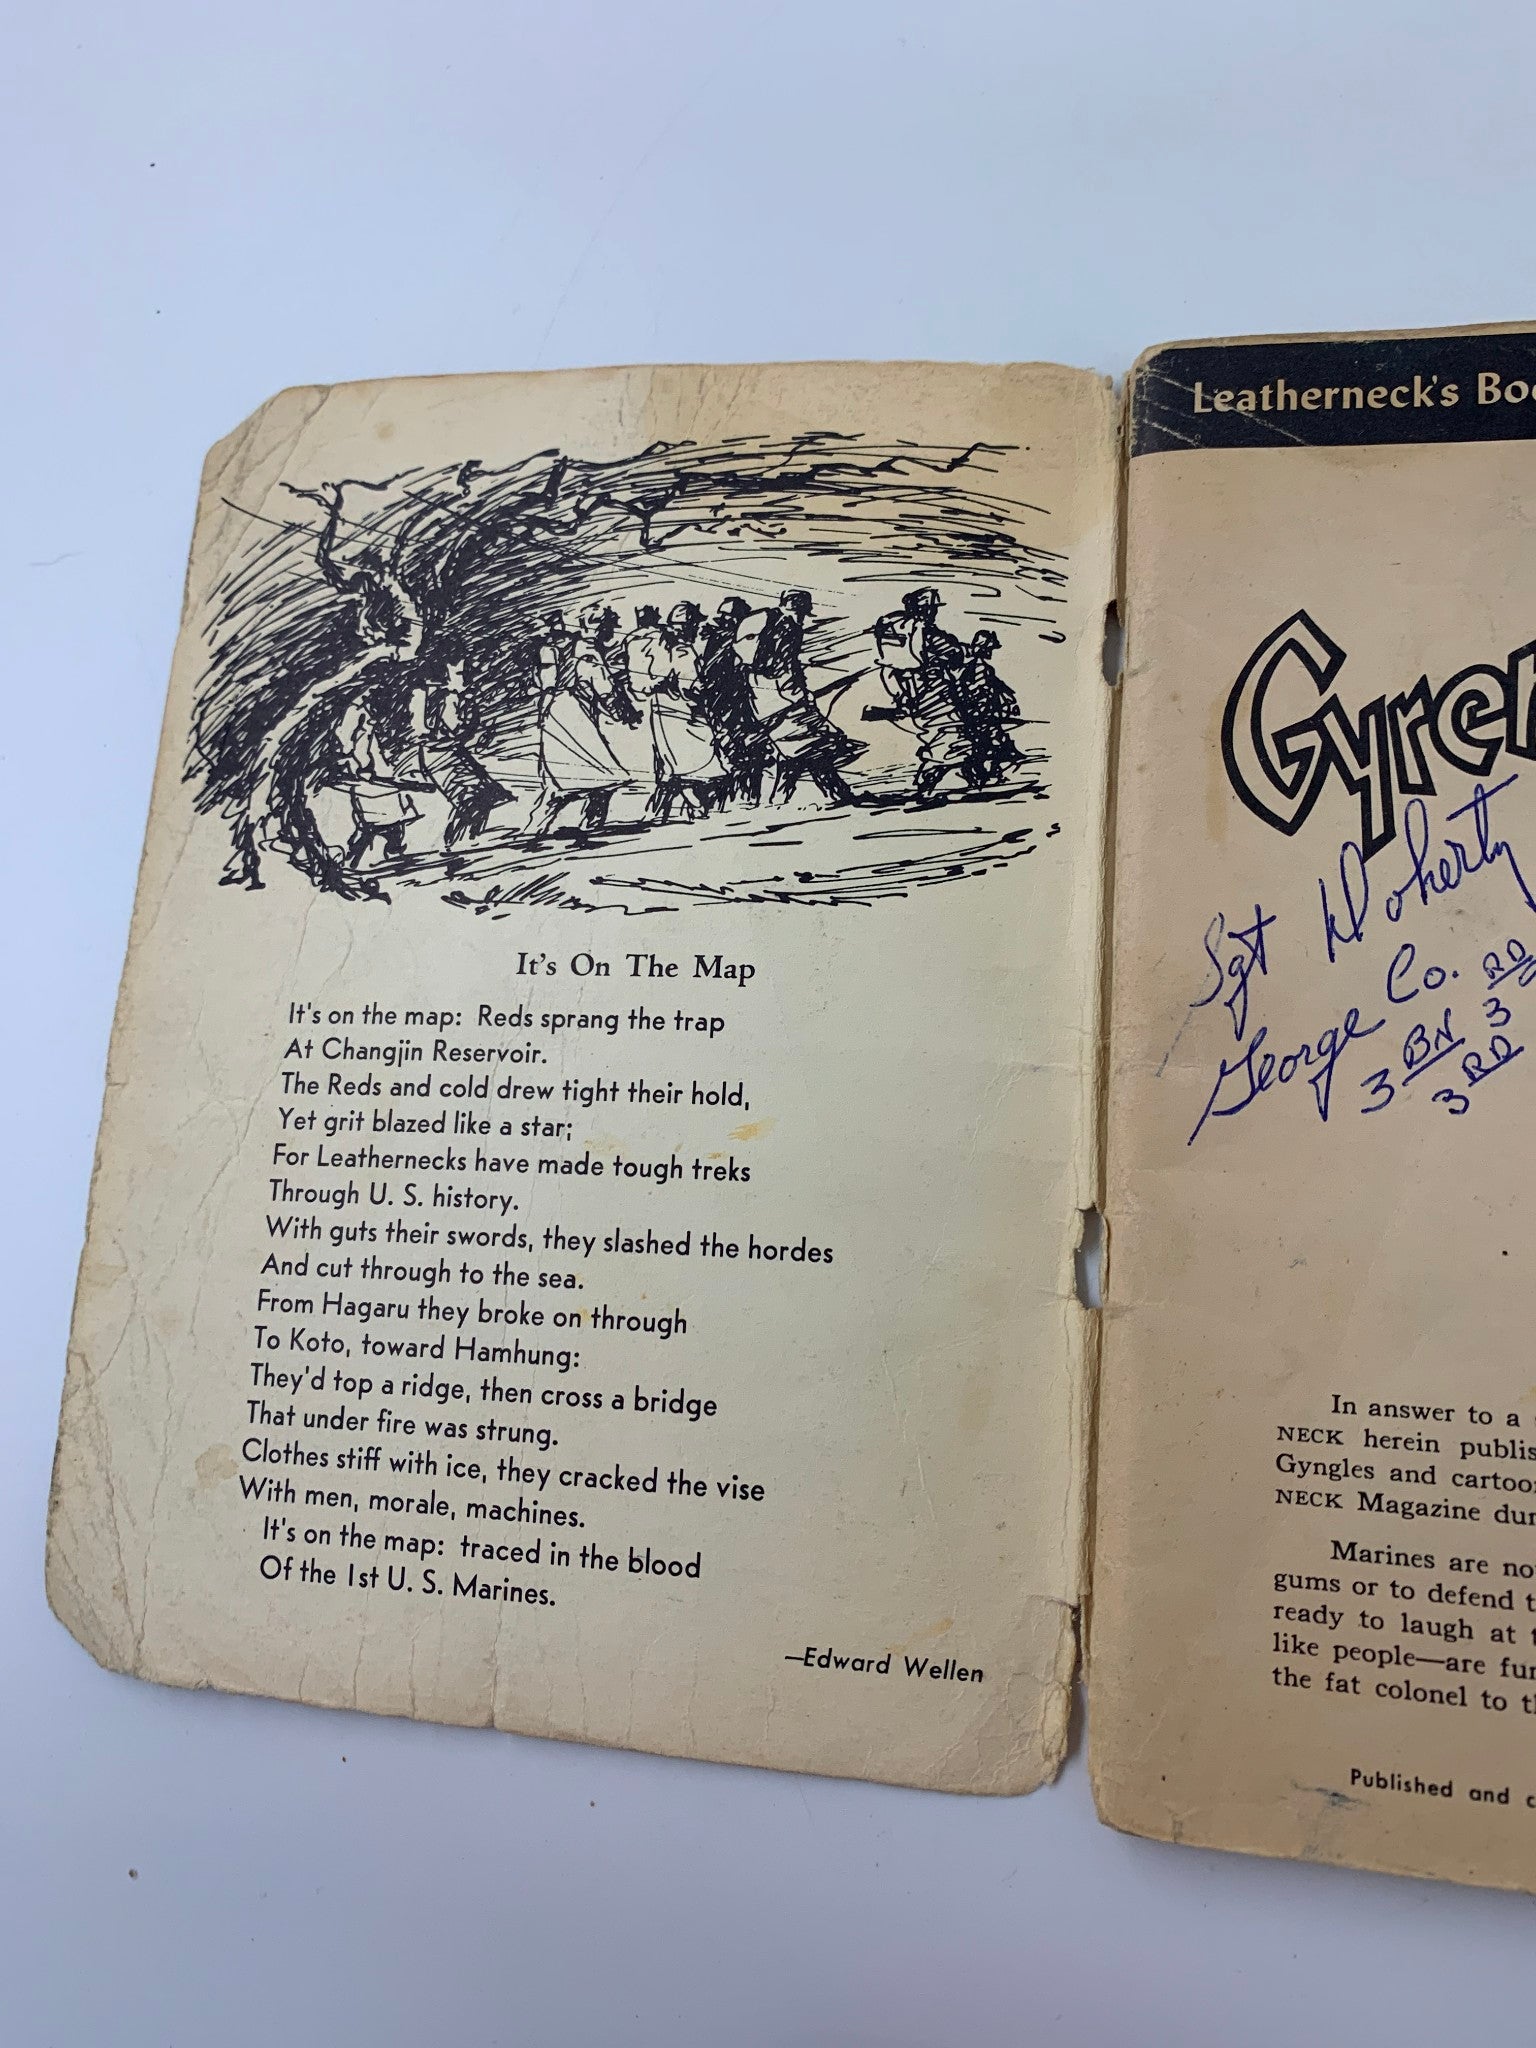 It's On The Map
It's on the map: Reds sprang the trap
At Changjin Reservoir.
The Reds and cold drew tight their hold,
Yet grit blazed like a star;
For Leathernecks have made tough treks
Through U. S. history.
With guts their swords, they slashed the hordes
And cut through to the sea.
From Hagaru they broke on through
To Koto, toward Hamhung:
They'd top a ridge, then cross a bridge
That under fire was strung.
Clothes stiff with ice, they cracked the vise
With men, morale, machines.
It's on the map: traced in the blood
Of the 1st U. S. Marines.
—Edward Wellen
Leatherneck's Boo
Gyren
Sgt Doherty
George Co.
3 RD
3 BN
3 RD
In answer to a
NECK herein publis
Gyngles and cartoon
NECK Magazine dur
Marines are no
gums or to defend t
ready to laugh at t
like people—are fun
the fat colonel to th
Published and c